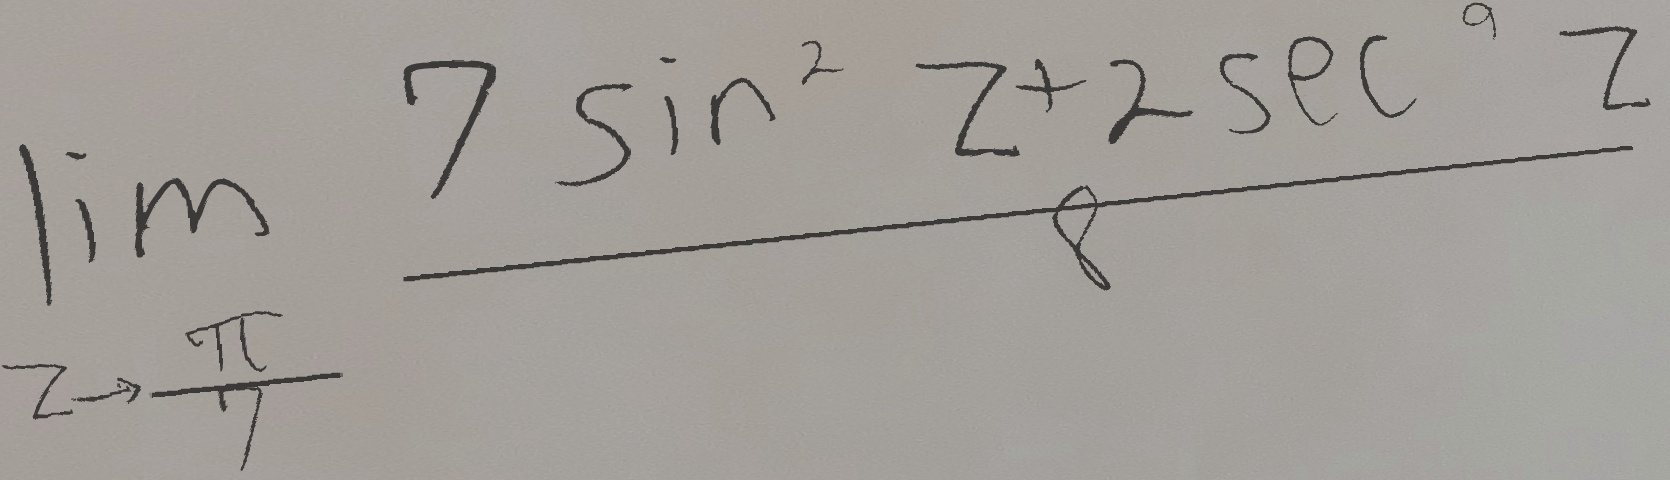 \lim_{z \to \frac{\pi}{7}} \frac{7 \sin^2 z + 2 \sec^9 z}{8}